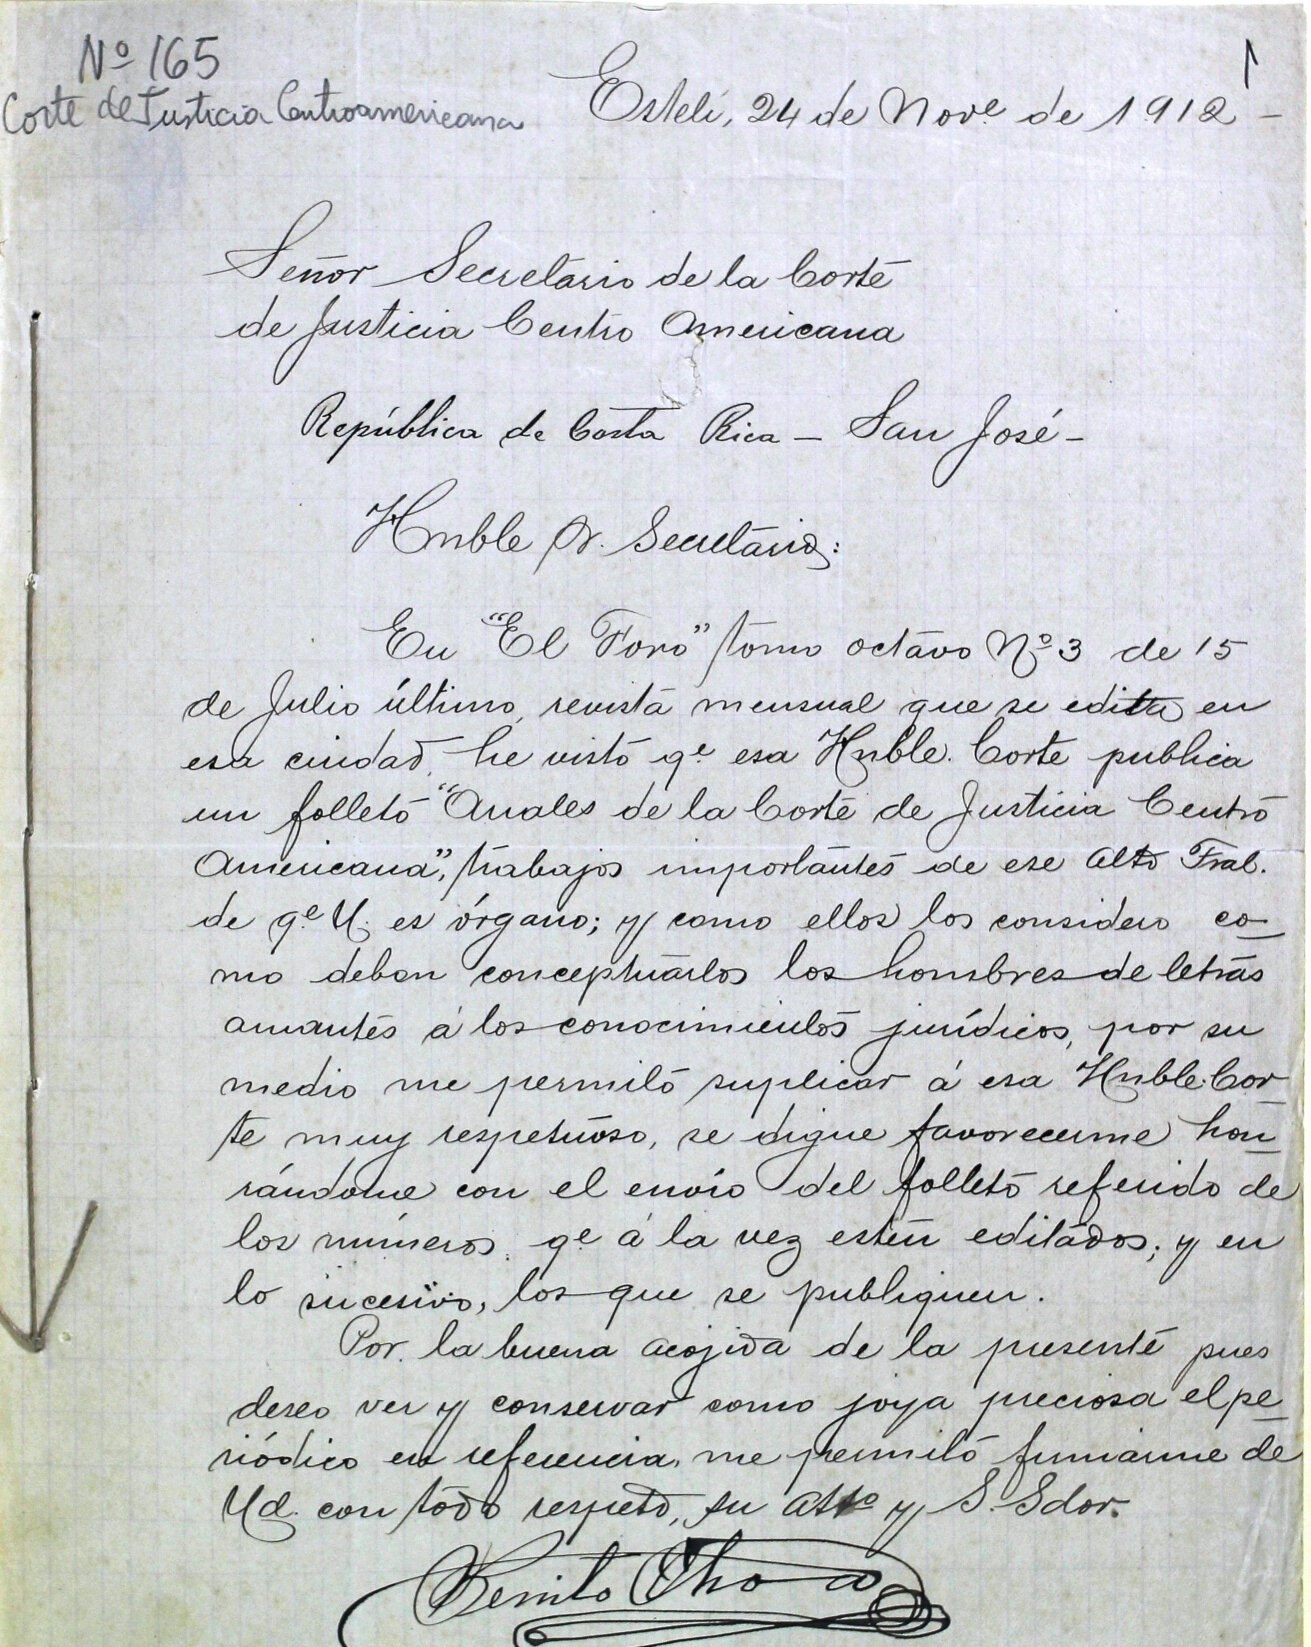 Nº 165
1
Corte de Justicia Centroamericana
Estelí, 24 de Nov.e de 1912 -
Señor Secretario de la Corte
de Justicia Centro Americana
República de Costa Rica - San José -
Hnble Sr. Secretario:
En "El Foro" tomo octavo Nº 3 de 15
de Julio último, revista mensual que se edita en
esa ciudad, he visto q.e esa Hnble. Corte publica
un folleto "Anales de la Corte de Justicia Centro
Americana", trabajos importantes de ese alto Tral.
de q.e U. es órgano; y como ellos los considero co-
mo deben conceptuarlos los hombres de letras
amantes á los conocimientos jurídicos, por su
medio me permito suplicar á esa Hnble. Cor-
te muy respetuoso, se digne favorecerme hon-
rándome con el envío del folleto referido de
los números q.e á la vez estén editados; y en
lo sucesivo, los que se publiquen.
Por la buena acojida de la presente pues
deseo ver y conservar como joya preciosa el pe-
riódico en referencia, me permito firmarme de
Ud. con todo respeto, su atto y S. Sdor.
Benito